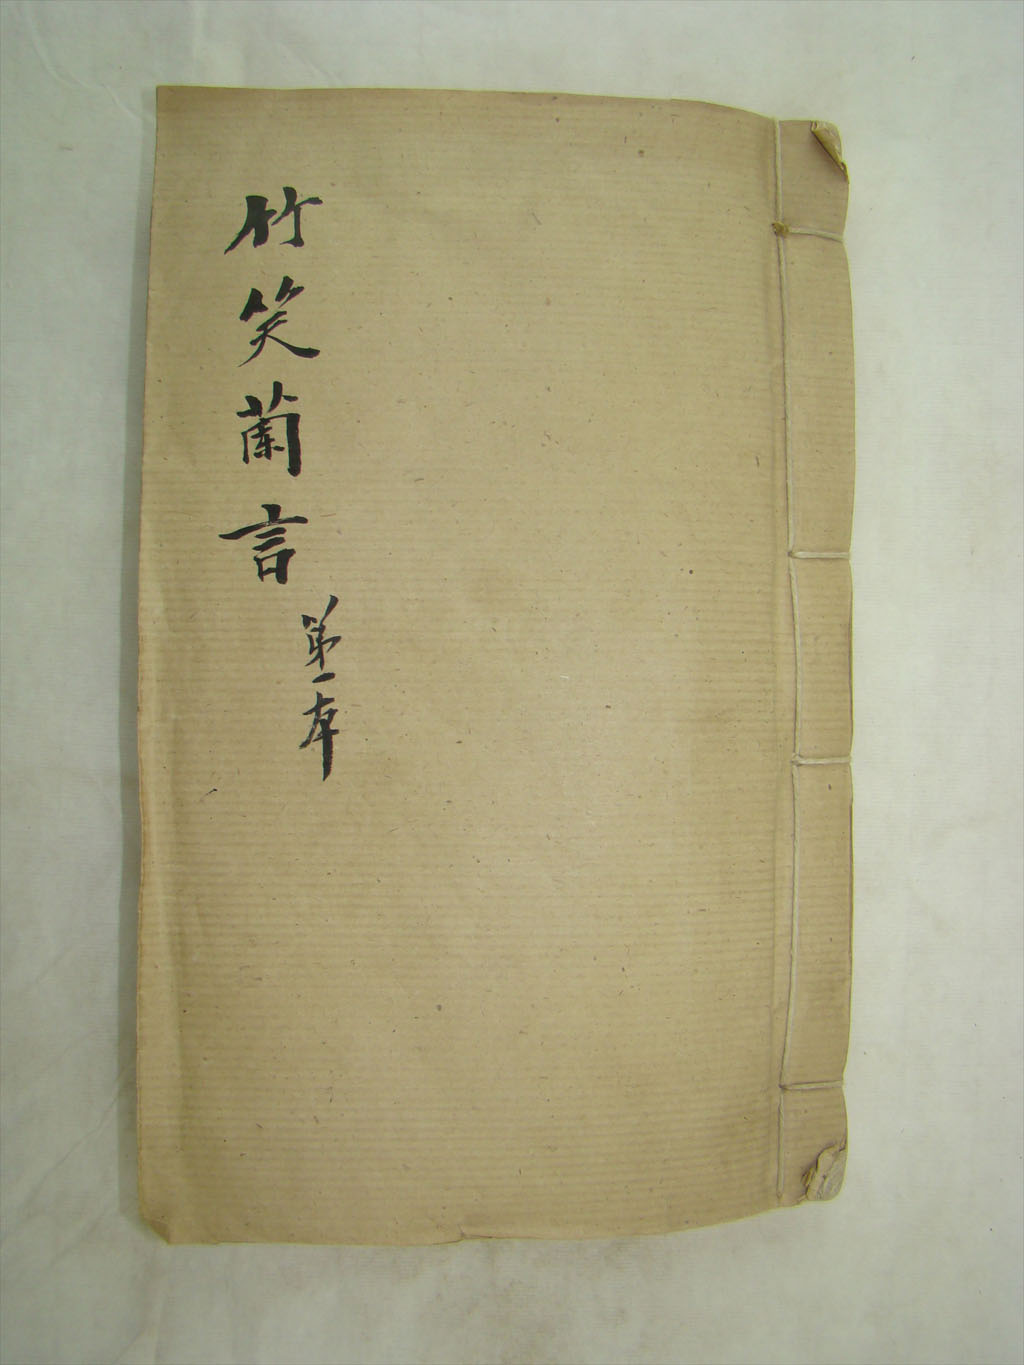 竹笑蘭言
第一本